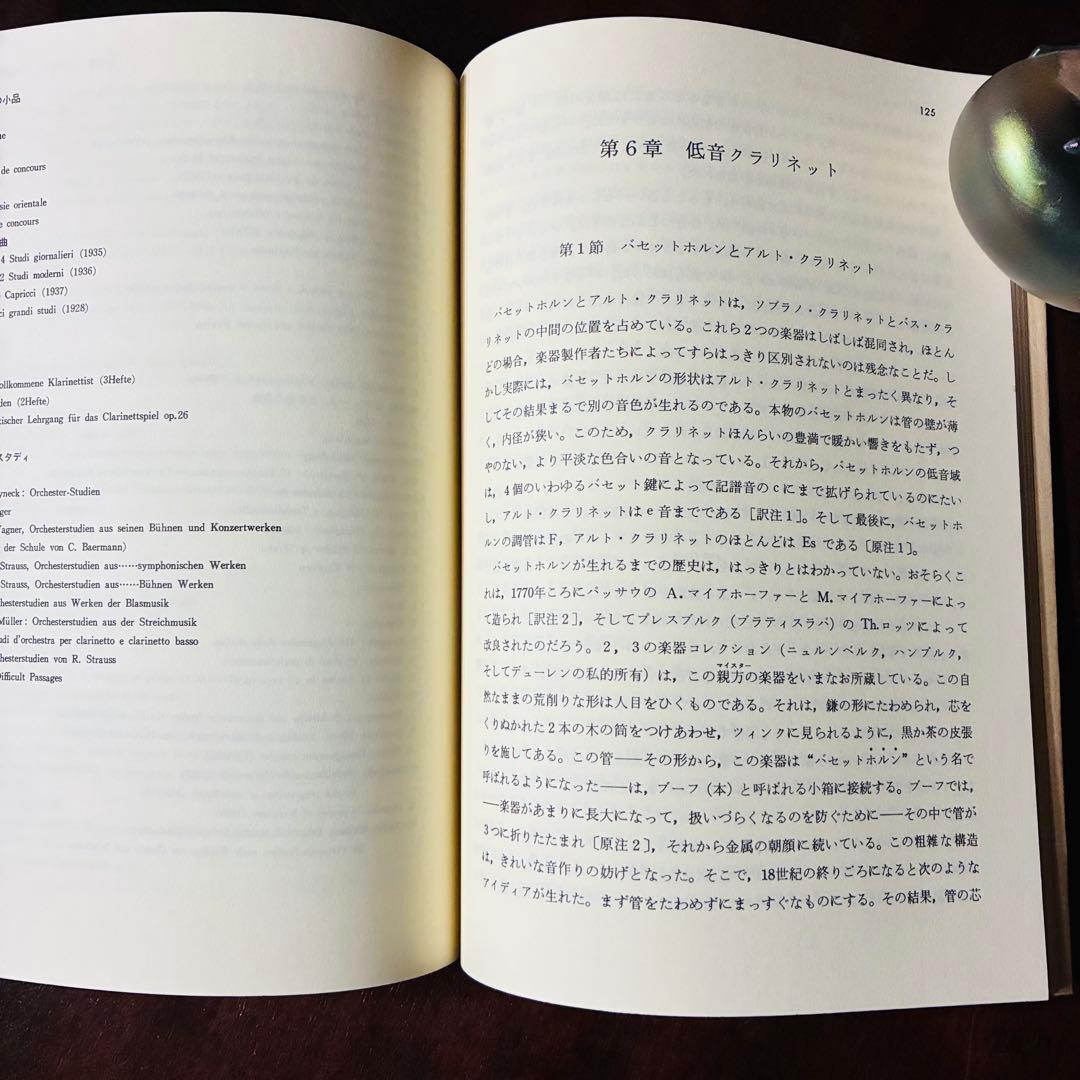 の小品
ne
de concours
sie orientale
e concours
曲
4 Studi giornalieri (1935)
2 Studi moderni (1936)
Capricci (1937)
ci grandi studi (1928)
ollkommene Klarinettist (3Hefte)
den (2Hefte)
tischer Lehrgang für das Clarinettspiel op.26
スタディ
yneck: Orchester-Studien
ger
Wagner, Orchesterstudien aus seinen Bühnen und Konzertwerken
der Schule von C. Baermann)
Strauss, Orchesterstudien aus……symphonischen Werken
Strauss, Orchesterstudien aus……Bühnen Werken
hesterstudien aus Werken der Blasmusik
Müller: Orchesterstudien aus der Streichmusik
udi d'orchestra per clarinetto e clarinetto basso
hesterstudien von R. Strauss
Difficult Passages
125
第6章 低音クラリネット
第1節 バセットホルンとアルト・クラリネット
バセットホルンとアルト・クラリネットは，ソプラノ・クラリネットとバス・クラ
リネットの中間の位置を占めている。これら2つの楽器はしばしば混同され，ほとん
どの場合，楽器製作者たちによってすらはっきり区別されないのは残念なことだ。し
かし実際には，バセットホルンの形状はアルト・クラリネットとまったく異なり，そ
してその結果まるで別の音色が生れるのである。本物のバセットホルンは管の壁が薄
く，内径が狭い。このため，クラリネットほんらいの豊満で暖かい響きをもたず，つ
やのない，より平淡な色合いの音となっている。それから，バセットホルンの低音域
は，4個のいわゆるバセット鍵によって記譜音のcにまで拡げられているのにたい
し，アルト・クラリネットはe音までである［訳注1］。そして最後に，バセットホ
ルンの調管はF，アルト・クラリネットのほとんどは Es である［原注1］。
バセットホルンが生れるまでの歴史は，はっきりとはわかっていない。おそらくこ
れは，1770年ころにパッサウの A. マイアホーファーと M. マイアホーファーによっ
て造られ［訳注2］，そしてプレスブルク（ブラティスラバ）の Th. ロッツによって
改良されたのだろう。2，3の楽器コレクション（ニュルンベルク，ハンブルク，
そしてデューレンの私的所有）は，この親方マイスターの楽器をいまなお所蔵している。この自
然なままの荒削りな形は人目をひくものである。それは，鎌の形にたわめられ，芯を
くりぬかれた2本の木の筒をつけあわせ，ツィンクに見られるように，黒か茶の皮張
りを施してある。この管――その形から，この楽器は“バセットホルン”という名で
呼ばれるようになった――は，ブーフ（本）と呼ばれる小箱に接続する。ブーフでは，
――楽器があまりに長大になって，扱いづらくなるのを防ぐために――その中で管が
3つに折りたたまれ［原注2］，それから金属の朝顔に続いている。この粗雑な構造
は，きれいな音作りの妨げとなった。そこで，18世紀の終りごろになると次のような
アイディアが生れた。まず管をたわめずにまっすぐなものにする。その結果，管の芯